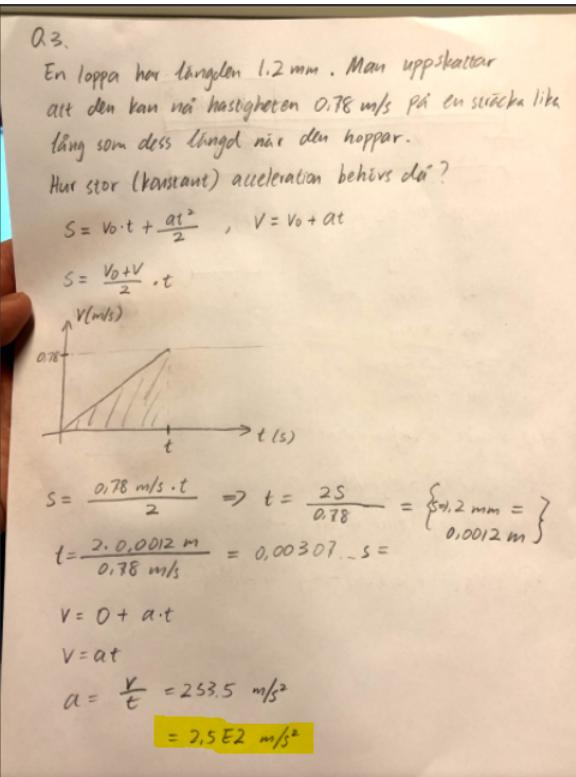 Q3.
En loppa har längden 1.2 mm. Man uppskattar
att den kan nå hastigheten 0.78 m/s på en sträcka lika
lång som dess längd när den hoppar.
Hur stor (konstant) acceleration behövs då?
S = V₀·t + at²/2 , V = V₀ + at
S = (V₀+V)/2 · t
V(m/s)
0.78
t
t (s)
S = (0,78 m/s · t)/2 => t = 2S/0.78 = {S=1,2 mm =
0,0012 m}
t = (2·0,0012 m)/(0,78 m/s) = 0,00307.. s =
V = 0 + a·t
V = at
a = V/t = 253.5 m/s²
= 2,5E2 m/s²